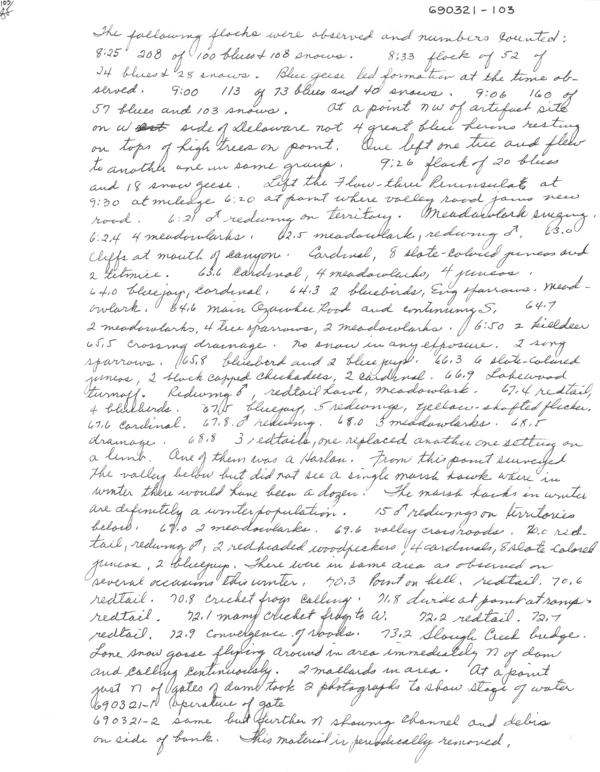 690321-103
The following flocks were observed and numbers counted:
8:25 208 of 100 blues & 108 snows. 8:33 flock of 52 of
24 blues & 28 snows. Blue geese led formation at the time ob-
served. 9:00 113 of 73 blues and 40 snows. 9:06 160 of
57 blues and 103 snows. At a point NW of artifact site
on W side of Delaware not 4 great blue herons resting
on tops of high trees on point. One left one tree and flew
to another one in same group. 9:26 flock of 20 blues
and 18 snow geese. Left the Flow-thru Peninsula at
9:30 at mileage 6:20 at point where valley road joins new
road. 6:21 ♂ redwing on territory. Meadowlark singing.
6:24 4 meadowlarks. 62.5 meadowlark, redwing ♂. 63.0
Cliffs at mouth of canyon. Cardinal, 8 slate-colored juncos and
2 titmice. 63.6 cardinal, 4 meadowlarks, 4 juncos.
64.0 bluejay, cardinal. 64.3 2 bluebirds, Eng sparrows. Mead-
owlark. 64.6 main Ozawkie Road and continuing S. 64.7
2 meadowlarks, 4 tree sparrows, 2 meadowlarks. 6:50 2 killdeer
65.5 crossing drainage. No snow in any exposure. 2 song
sparrows. 65.8 bluebird and 2 blue jays. 66.3 6 slate-colored
juncos, 2 black capped chickadees, 2 cardinal. 66.9 Lakewood
turnoff. Redwing ♂, redtail hawk, meadowlark. 67.4 redtail,
4 bluebirds. 67.5 bluejay, 5 redwings, yellow-shafted flicker.
67.6 cardinal. 67.8 ♂ redwing. 68.0 3 meadowlarks. 68.5
drainage. 68.8 3 redtails, one replaced another one setting on
a limb. One of them was a Harlan. From this point surveyed
the valley below but did not see a single marsh hawk where in
winter there would have been a dozen. The marsh hawks in winter
are definitely a winter population. 15 ♂ redwings on territories
below. 69.0 2 meadowlarks. 69.6 valley crossroads. 70.0 red-
tail, redwing ♂, 2 redheaded woodpeckers, 4 cardinals, 8 slate colored
juncos, 2 bluejays. There were in same area as observed on
several occasions this winter. 70.3 Point on hill, redtail. 70.6
redtail. 70.8 cricket frogs calling. 71.8 divide at point at ramps
redtail. 72.1 many cricket frogs to W. 72.2 redtail. 72.7
redtail. 72.9 convergence of roads. 73.2 Slough Creek bridge.
Lone snow goose flying around in area immediately N of dam
and calling continuously. 2 mallards in area. At a point
just N of gates of dam took 2 photographs to show stage of water
690321-1 aperature of gate
690321-2 same but further N showing channel and debris
on side of bank. This material is periodically removed.